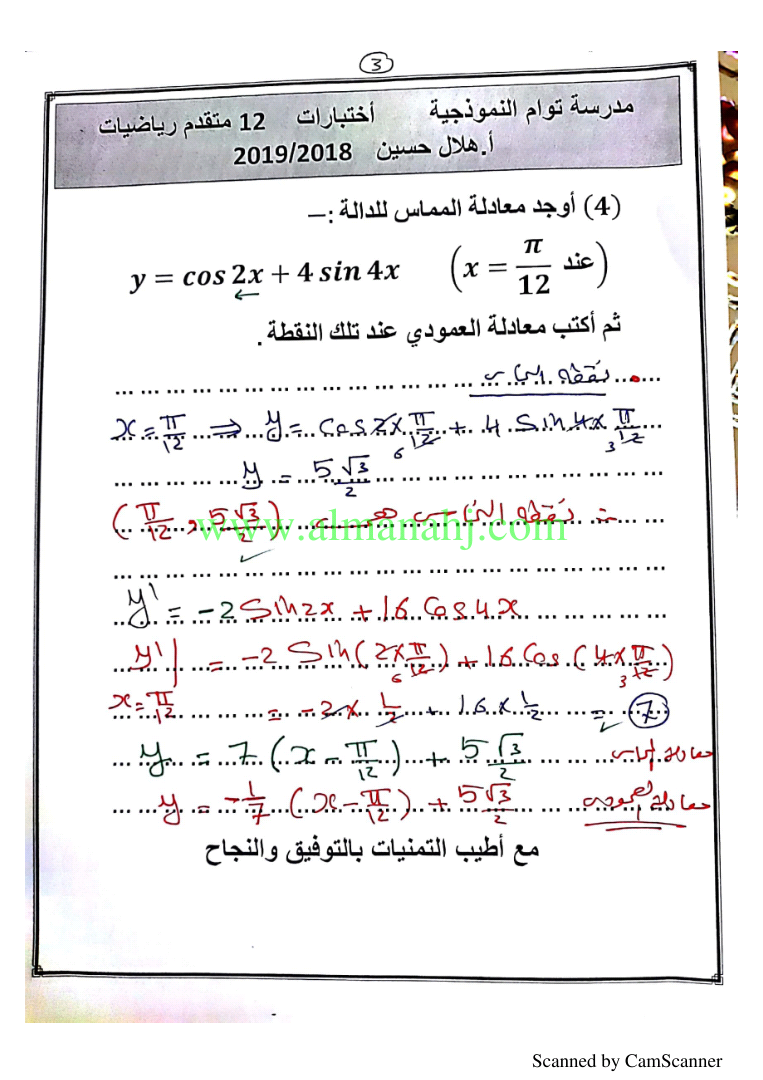 3
مدرسة توام النموذجية أختبارات 12 متقدم رياضيات
أ.هلال حسين 2019/2018
(4) أوجد معادلة المماس للدالة :–
y = cos 2x + 4 sin 4x (x = π/12 عند)
ثم أكتب معادلة العمودي عند تلك النقطة .
نقطة التماس
x = π/12 ⇒ y = cos 2×π/12 + 4 sin 4×π/12
6 3
y = 5√3/2
∴ نقطة التماس هي (π/12 , 5√3/2)
www.almanahj.com
y' = -2 sin 2x + 16 cos 4x
y'| = -2 sin(2×π/12) + 16 cos(4×π/12)
6 3
x = π/12 = -2 × 1/2 + 16 × 1/2 = 7
معادلة المماس y = 7 (x - π/12) + 5√3/2
معادلة العمودي y = -1/7 (x - π/12) + 5√3/2
مع أطيب التمنيات بالتوفيق والنجاح
Scanned by CamScanner